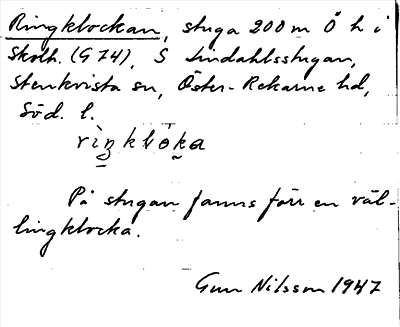 Ringklockan, stuga 200 m Ö h i
Skolh. (G 74), S Lindahlsstugan,
Stenkvista sn, Öster-Rekarne hd,
Söd. l.
På stugan fanns förr en väl-
lingklocka.
Gun Nilsson 1947